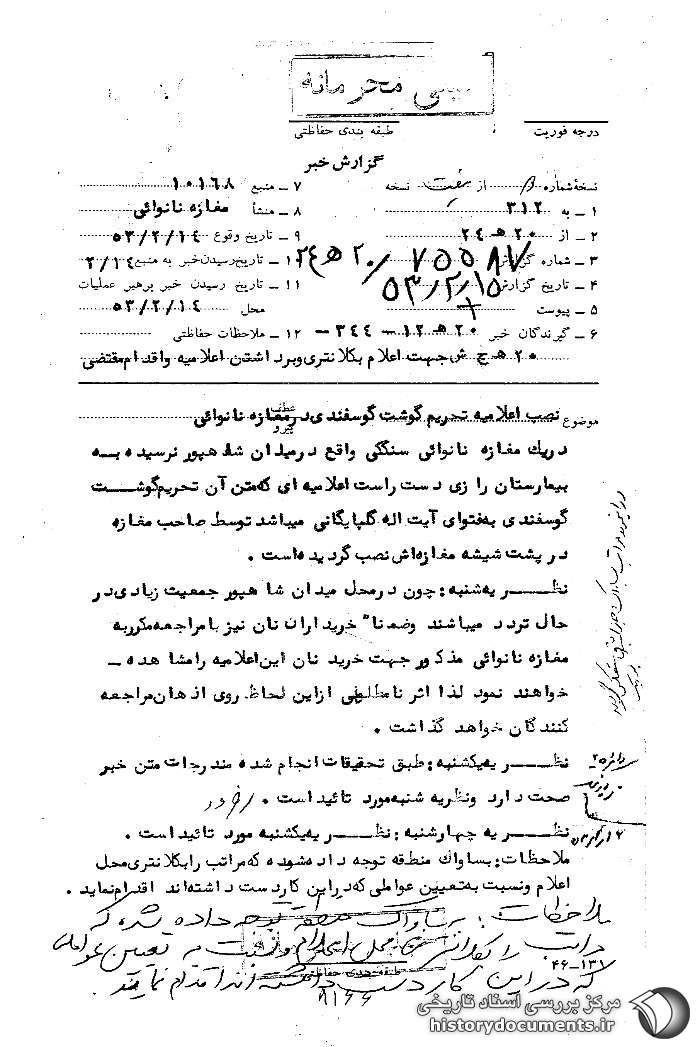 خیلی محرمانه
درجه فوریت
طبقه بندی حفاظتی
گزارش خبر
نسخه شماره ۵ از هفت نسخه
۱ – به ۳۱۲
۲ – از ۲۰ هـ ۲۴
۳ – شماره گزارش ۷۵۵۸۷ / ۲۰ هـ ۲۴
۴ – تاریخ گزارش ۵۳/۲/۱۵
۵ – پیوست
۶ – گیرندگان خبر ۲۰ هـ ۱۲ – ۳۴۴ –
۷ – منبع ۱۰۱۶۸
۸ – منشأ مغازه نانوائی
۹ – تاریخ وقوع ۵۳/۲/۱۴
۱ – تاریخ رسیدن خبر به منبع ۲/۱۴
۱۱ – تاریخ رسیدن خبر برهبر عملیات
محل ۵۳/۲/۱۴
۱۲ – ملاحظات حفاظتی
۲۰ هـ چ ش جهت اعلام بکلانتری وبرداشتن اعلامیه واقدام مقتضی
موضوع نصب اعلامیه تحریم گوشت گوسفندی در مغازه نانوائی
عطف
پیرو
دریك مغازه نانوائی سنگکی واقع درمیدان شاهپور نرسیده به
بیمارستان رازی دست راست اعلامیه ای که متن آن تحریم گوشت
گوسفندی به فتوای آیت اله گلپایگانی میباشد توسط صاحب مغازه
در پشت شیشه مغازه اش نصب گردیده است .
نظریه شنبه : چون درمحل میدان شاهپور جمعیت زیادی در
حال تردد میباشند وضمناً خریداران نان نیز با مراجعه مکرر به
مغازه نانوائی مذکور جهت خرید نان این اعلامیه را مشاهده –
خواهند نمود لذا اثر نامطلوبی ازاین لحاظ روی اذهان مراجعه
کنندگان خواهد گذاشت .
نظریه یکشنبه : طبق تحقیقات انجام شده مندرجات متن خبر
صحت دارد ونظریه شنبه مورد تائید است .
نظریه چهارشنبه : نظریه یکشنبه مورد تائید است .
ملاحظات : بساواك منطقه توجه داده شود که مراتب را بکلانتری محل
اعلام ونسبت به تعیین عواملی که دراین کار دست داشته اند اقدام نماید .
ملاحظات : به ساواک منطقه توجه داده شد که
مراتب را بکلانتری محل اعلام و نسبت به تعیین عواملی
که در این کار دست داشته اند اقدام نمایند
۴۶-۱۳۷
طبقه بندی حفاظتی
۸۱۶۶
مرکز بررسی اسناد تاریخی
historydocuments.ir